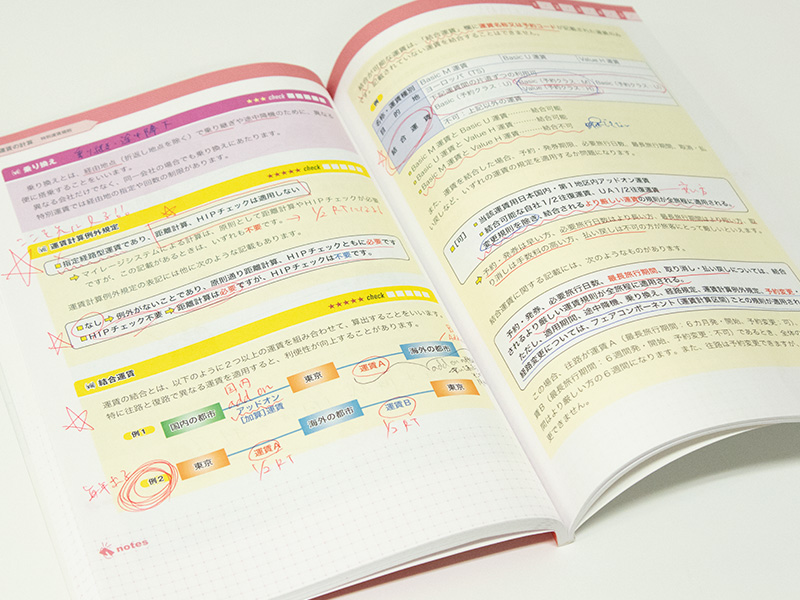 運賃の計算
特別運賃規則
★★★ check
vi 乗り換え
乗り換えとは、経由地点（折返し地点を除く）で乗り継ぎや途中降機のために、異なる
便に搭乗することをいいます。
異なる会社だけでなく、同一会社の場合でも乗り換えにあたります。
特別運賃では経由地の指定や回数の制限があります。
ここを先に見る!!
★★★★★ check
vii 運賃計算例外規定
指定経路型運賃であり、距離計算、HIPチェックは適用しない
→ マイレージシステムによる計算は、原則として距離計算やHIPチェックが必要
ですが、この記載があるときは、いずれも不要です。
→ 1/2 RT
運賃計算例外規定の表記には他に次のような記載もあります。
なし→例外がないことであり、原則通り距離計算、HIPチェックともに必要です
HIPチェック不要→距離計算は必要ですが、HIPチェックは不要です。
★★★★★ check
viii 結合運賃
運賃の結合とは、以下のように2つ以上の運賃を組み合わせて、算出することをいいます。
特に往路と復路で異なる運賃を適用すると、利便性が向上することがあります。
国内
add on
例1
国内の都市
アッドオン
[加算]運賃
東京
運賃A
海外の都市
1/2 RT
例2
東京
運賃A
海外の都市
運賃B
東京
1/2 RT
notes
結合が可能な運賃は、「結合運賃」欄に運賃名称又は予約コードが記載された運賃のみ
です。記載されていない運賃を結合することはできません。
例
名称・運賃種別
Basic M 運賃
Basic U 運賃
目的地
ヨーロッパ（TS）
結合運賃
下記運賃間の片道ずつの利用可
Basic（予約クラス：U）
Value（予約クラス：H）
Basic（予約クラス：M）
不可：上記以外の運賃
Basic M 運賃と Basic U 運賃……結合可能
Basic U 運賃と Value H 運賃……結合可能
Basic M 運賃と Value H 運賃……結合不可
また、運賃を結合した場合、予約・発券期限、必要旅行日数、最長旅行期間、取消・払
い戻しなど、いずれの運賃の規定を適用するか問題になります。
[可]
当該運賃用日本国内・第1地区内アッドオン運賃
結合可能な自社1/2往復運賃、UA1/2往復運賃
変更規則を除き、結合されるより厳しい運賃の規則が全旅程に適用される。
→予約・発券は早い方、必要旅行日数は長い方、最長旅行期間は短い方、取
り消しは手数料の高い方、払い戻しは不可の方が旅客にとって厳しいといえます。
結合運賃に関する記載には、次のようなものがあります。
予約・発券、必要旅行日数、最長旅行期間、取り消し・払い戻しについては、結合
されるより厳しい運賃規則が全旅程に適用される。
ただし、適用期間・途中降機、乗り換え、経路規定、運賃計算例外規定、予約変更・
経路変更については、フェアコンポーネント（運賃計算区間）ごとの規則が適用され
この場合、往路が運賃A（最長旅行期間：6カ月発・開始、予約変更：可）、
賃B（最長旅行期間：6週間発・開始、予約変更：不可）であるとき、全体の
間はより厳しい方の6週間になります。また、往路は予約変更できますが、
更できません。